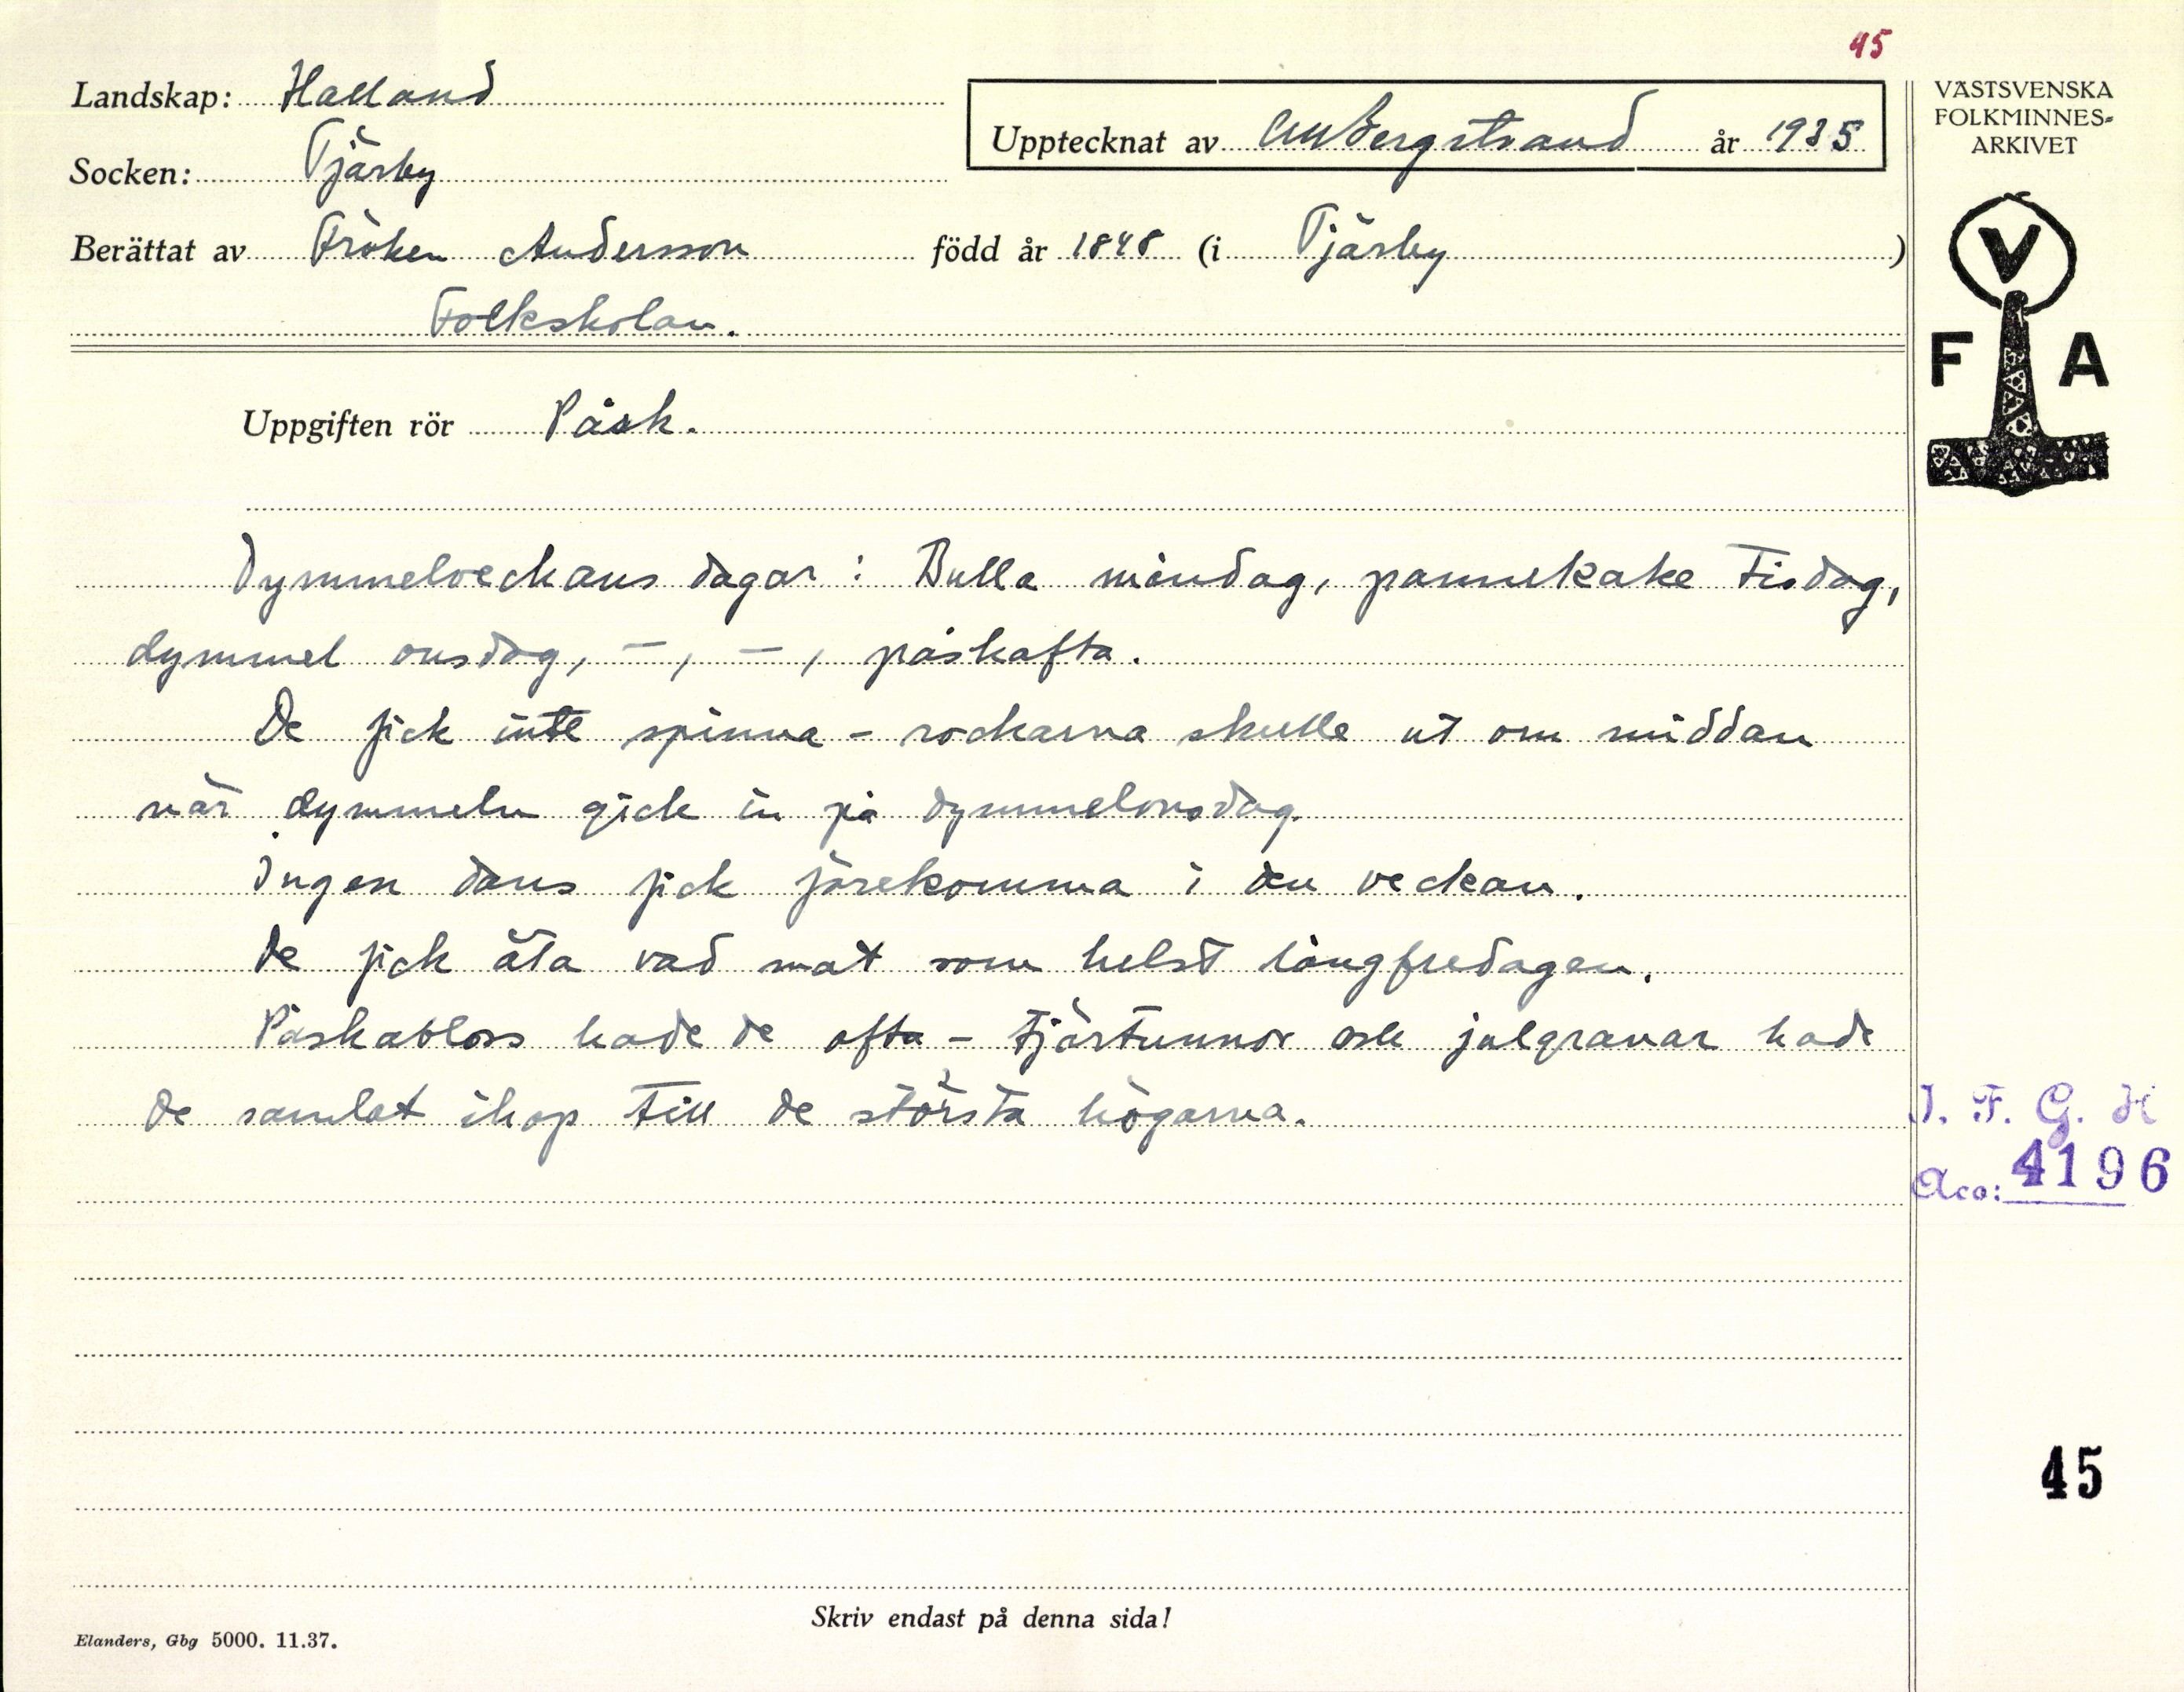 45
Landskap: Halland
Upptecknat av CMBergstrand år 1935
VÄSTSVENSKA
FOLKMINNES-
ARKIVET
Socken: Tjärby
Berättat av Fröken Andersson född år 1848 (i Tjärby)
Folkskolan.
V
F A
Uppgiften rör Påsk.
Dymmelveckans dagar: Bulla måndag, pannekake Tisdag,
dymmel onsdag, –, –, påskafta.
De fick inte spinna – rockarna skulle ut om middan
när dymmeln gick in på dymmelonsdag.
Ingen dans fick förekomma i den veckan.
De fick äta vad mat som helst långfredagen.
Påskabloss hade de ofta – tjärtunnor och julgranar hade
de samlat ihop till de största högarna.
I. F. G. H
Acc: 4196
45
Skriv endast på denna sida!
Elanders, Gbg 5000. 11.37.